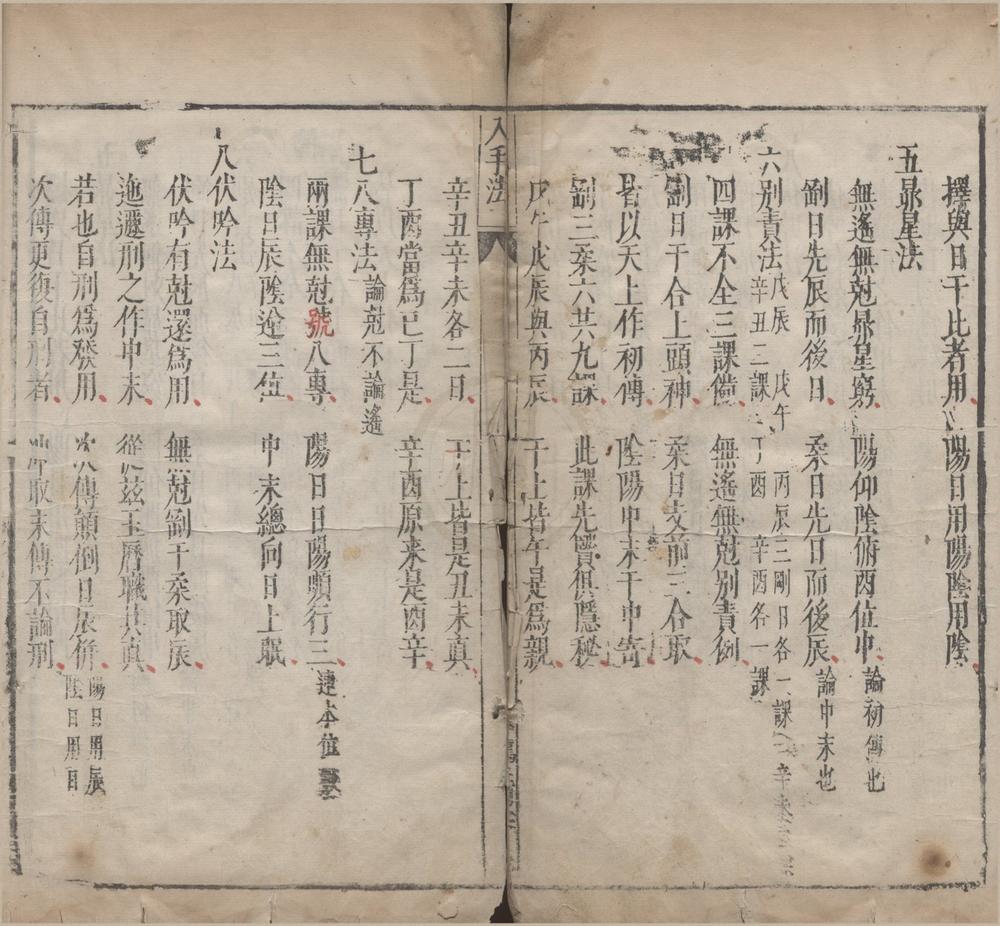 擇與日干比者用 陽日用陽陰用陰
五昴星法
無遙無尅昴星窮 陽仰陰俯酉位中 論初傳也
剛日先辰而後日 柔日先日而後辰 論中末也
六別責法 戊辰 戊午 丙辰三剛日各一課
辛丑二課 丁酉 辛酉各一課
四課不全三課備 無遙無尅別責例
剛日干合上頭神 柔日支前三合取
皆以天上作初傳 陰陽中末干中寄
剛三柔六共九課 此課先賢俱隱秘
戊午戊辰與丙辰 干上皆午是為親
入手法
辛丑辛未各二日 干上皆是丑未真
丁酉當為巳丁是 辛酉原來是酉辛
七八專法 論尅不論遙
兩課無尅號八專 陽日日陽順行三 連本位
陰日辰陰逆三位 中末總向日上眠
八伏吟法
伏吟有尅還為用 無尅剛干柔取辰
迤邐刑之作中末 從茲玉曆職其真
若也自刑為發用 次傳顛倒日辰併 陽日用辰
陰日用日
次傳更復自刑者 冲取末傳不論刑